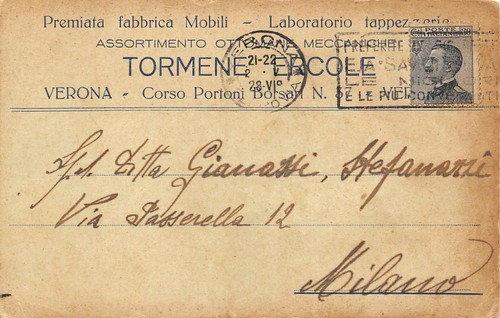 Premiata fabbrica Mobili - Laboratorio tappezzerie
ASSORTIMENTO OTTOMANE MECCANICHE
TORMENE ERCOLE
VERONA - Corso Portoni Borsari N. 57 -
VERONA
21-22
28·VIº
PREFERITE
E LE PIÙ
POSTE
Spt. Ditta Gianassi, Stefanazzi
Via Passerella 12
Milano